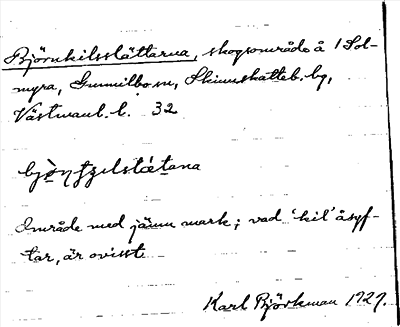 Björnkilsslättarna, skogsområde å 1 Sol-
myra, Gunnilbo sn, Skinnskatteb. bg,
Västmanl. l. 32
Område med jämn mark; vad 'kil' åsyf-
tar, är ovisst
Karl Björkman 1929.